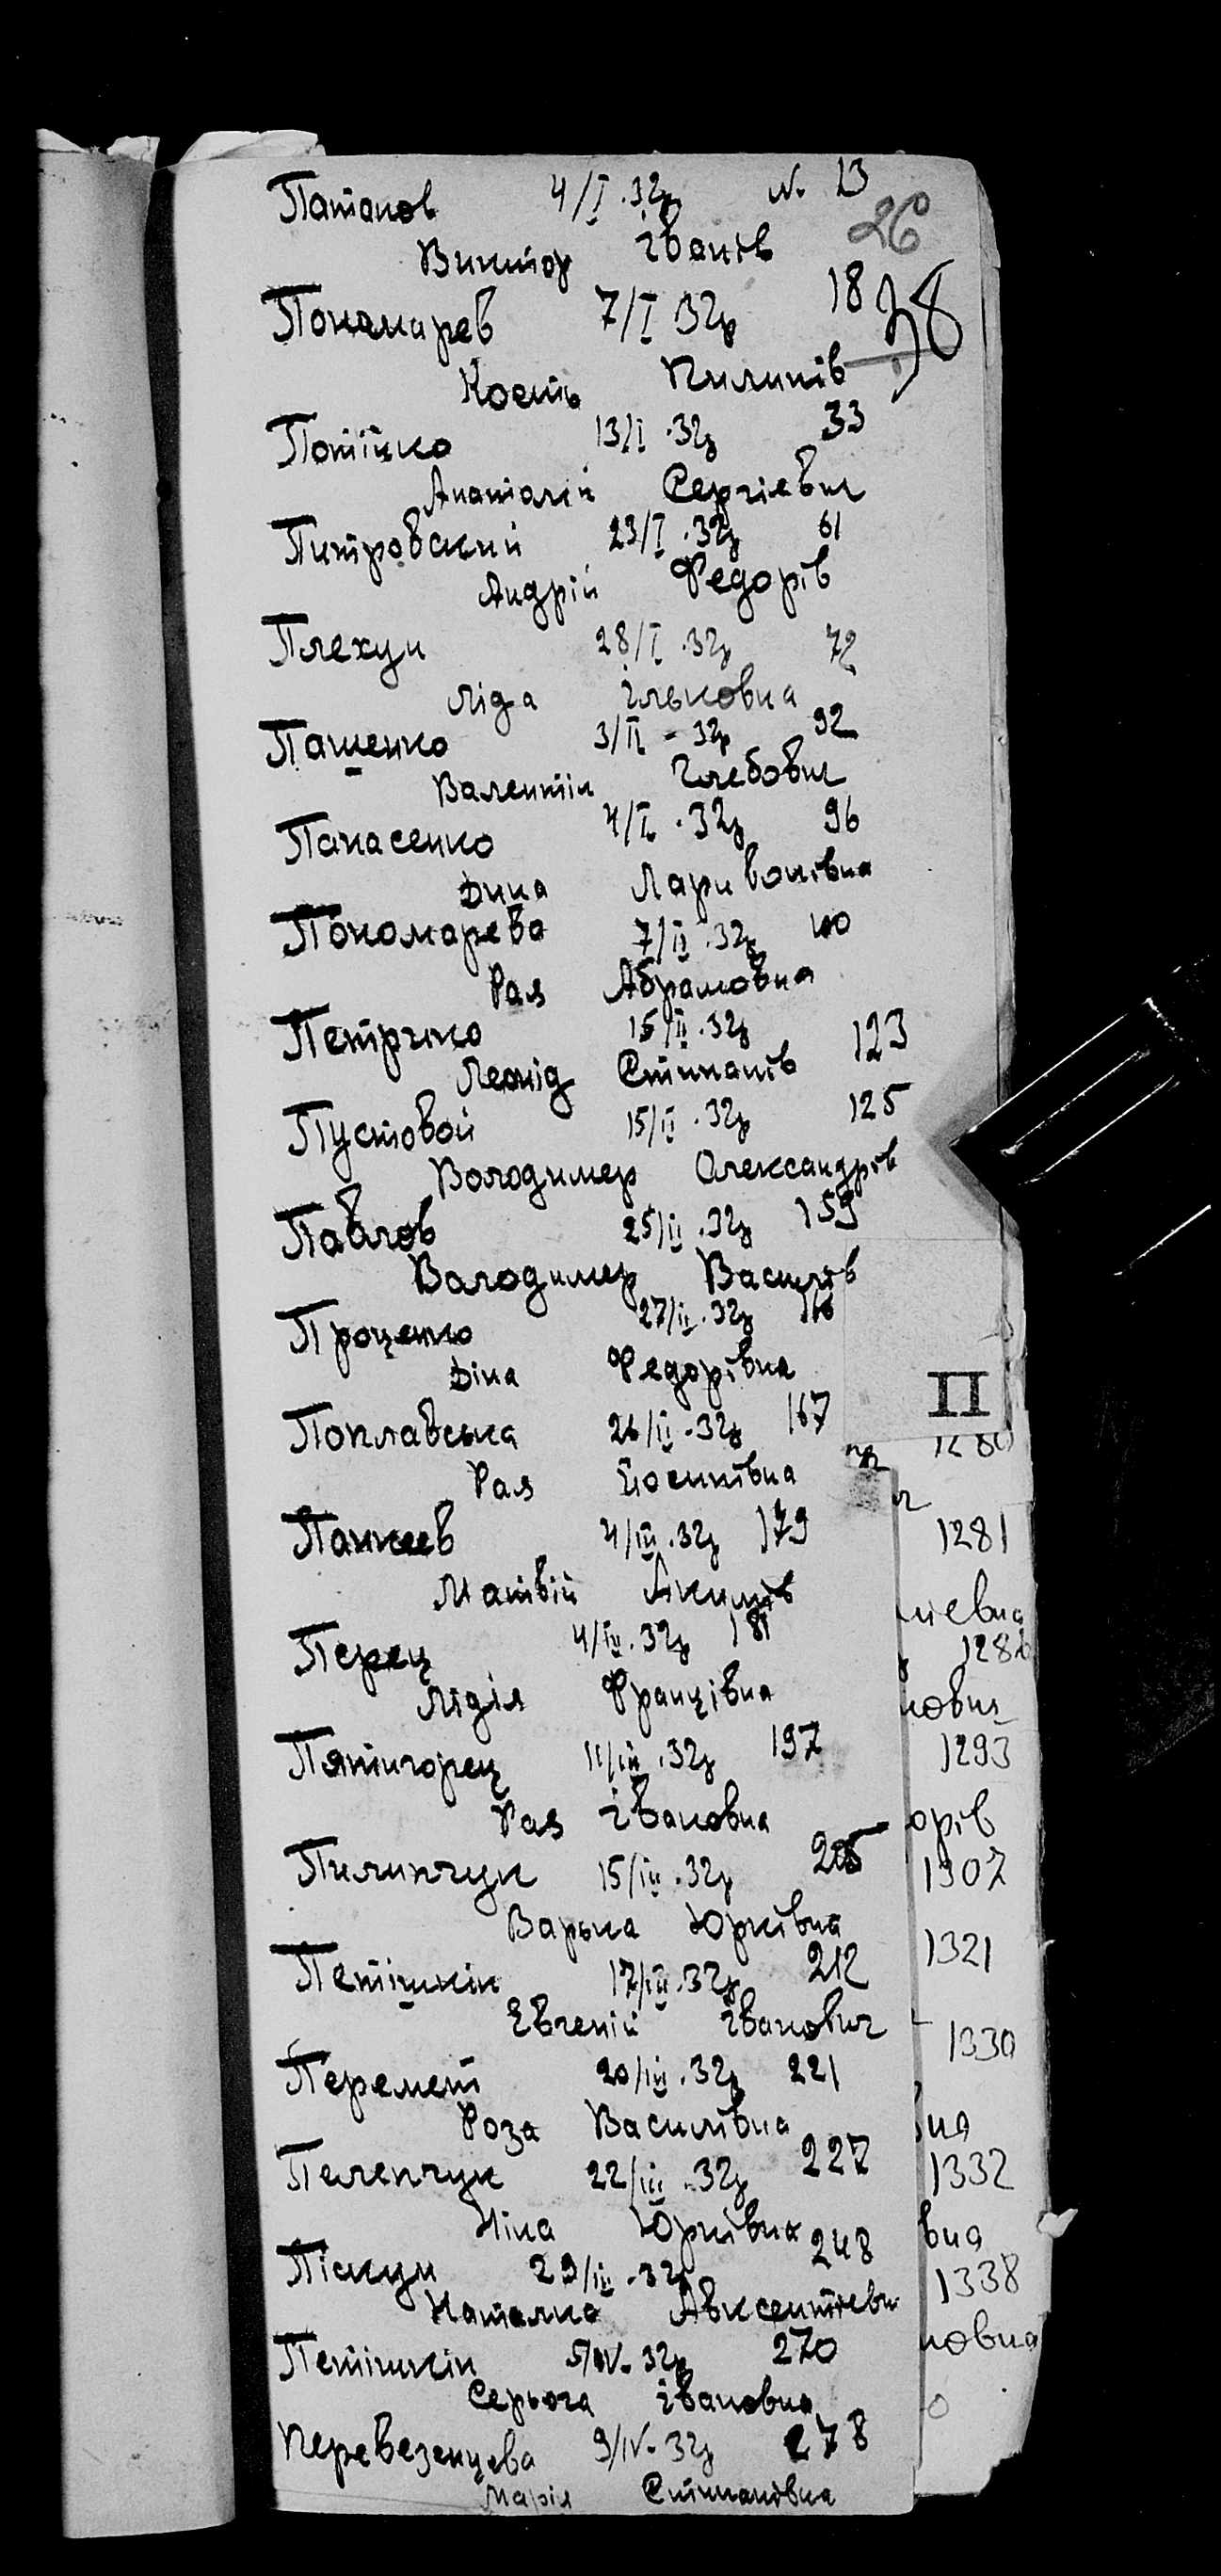 Патанов 4/I.32р N. 13
26
Виктор Іванів
Понамарев 7/I 32р 18
38
Кость Пилипів
Потійко 13/I.32р 33
Анатолій Сергієвич
Питровский 23/I.32р 61
Андрій Федорів
Плехун 28/I.32р 72
Ліда Ільковна
Пашенко 3/II-32р 92
Валентін Глебович
Панасенко 4/II.32р 96
Дина Ларивонівна
Пономарева 7/II.32р 100
Рая Абрамовна
Петрчнко 15/II.32р 123
Леонід Стипанів
Пустовой 15/II.32р 125
Володимер Олександрів
Павлов 25/II.32р 159
Володимер Василів
Проценко 27/II.32р
Діна Федорівна
Поплавська 26/II.32р 167
Рая Йосипівна
Панкеев 4/III.32р 179
Матвій Якимів
Перец 4/III.32р 181
Лідія Францівна
Пятигорец 11/III.32р 197
Рая Івановна
Пилипчук 15/III.32р 205
Варька Юрківна
Петішкін 17/III.32р 212
Евгеній Іванович
Перемет 20/III.32р 221
Роза Василівна
Пелепчук 22/III.32р 227
Ніна Юрківна
Піскун 29/III.32р 248
Наталка Авксентієвн
Петішкін 5/IV.32р 270
Серьога Івановна
Перевезенцева 9/IV.32р 278
Марія Стипанівна
П
1280
1281
иєвна
1286
нович
1293
орів
1307
1321
1330
вна
1332
вна
1338
новна